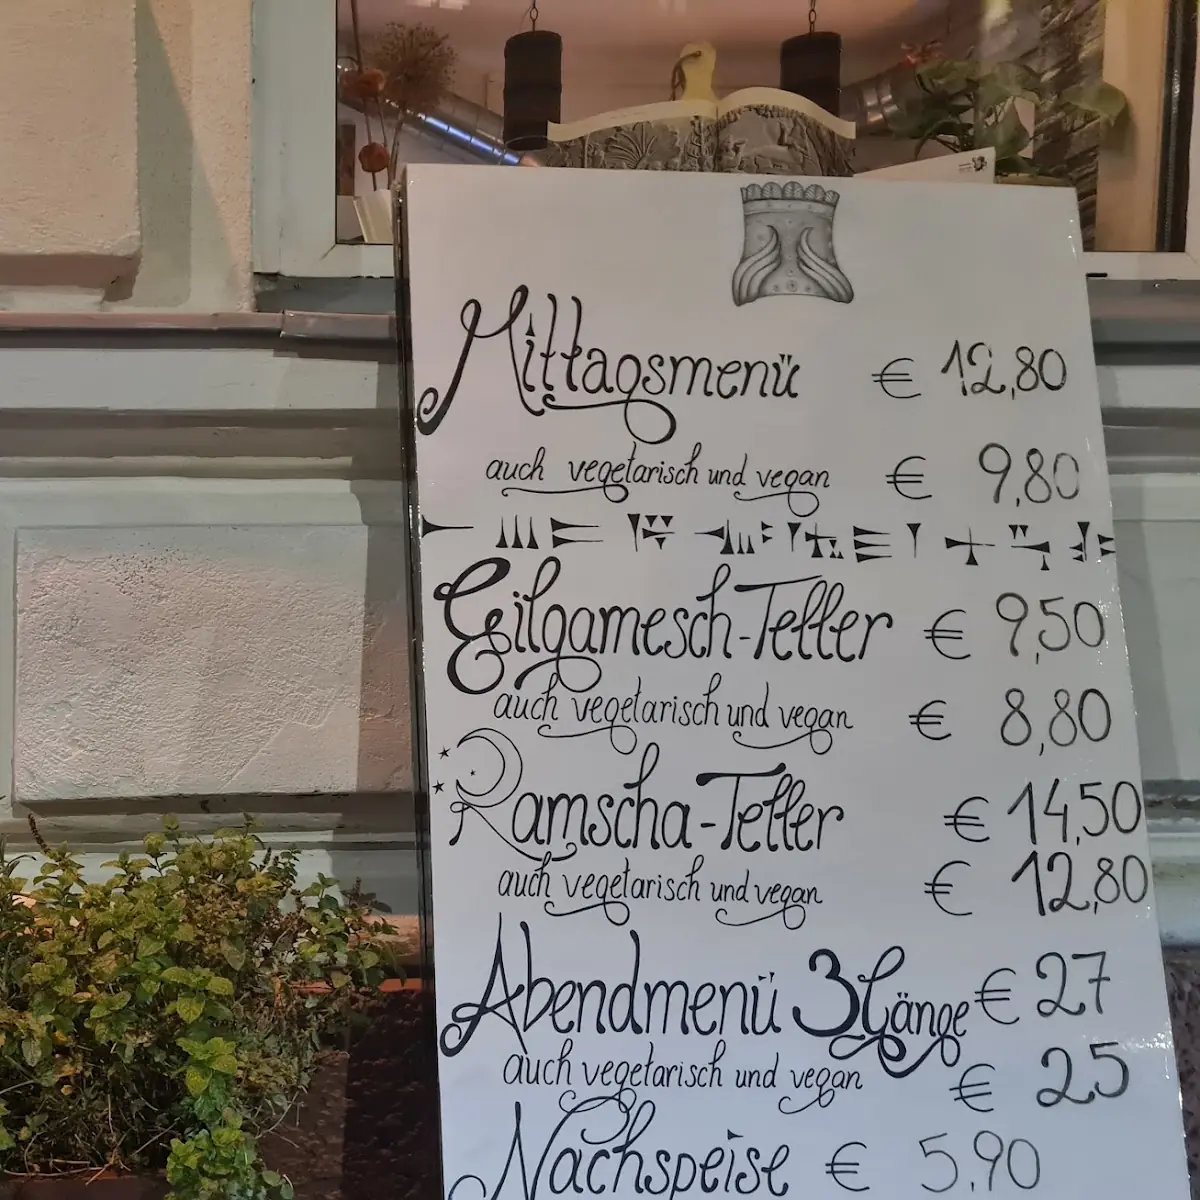 Mittagsmenü € 12,80
auch vegetarisch und vegan € 9,80
Gilgamesch-Teller € 9,50
auch vegetarisch und vegan € 8,80
Ramscha-Teller € 14,50
auch vegetarisch und vegan € 12,80
Abendmenü 3 Gänge € 27
auch vegetarisch und vegan € 25
Nachspeise € 5,90